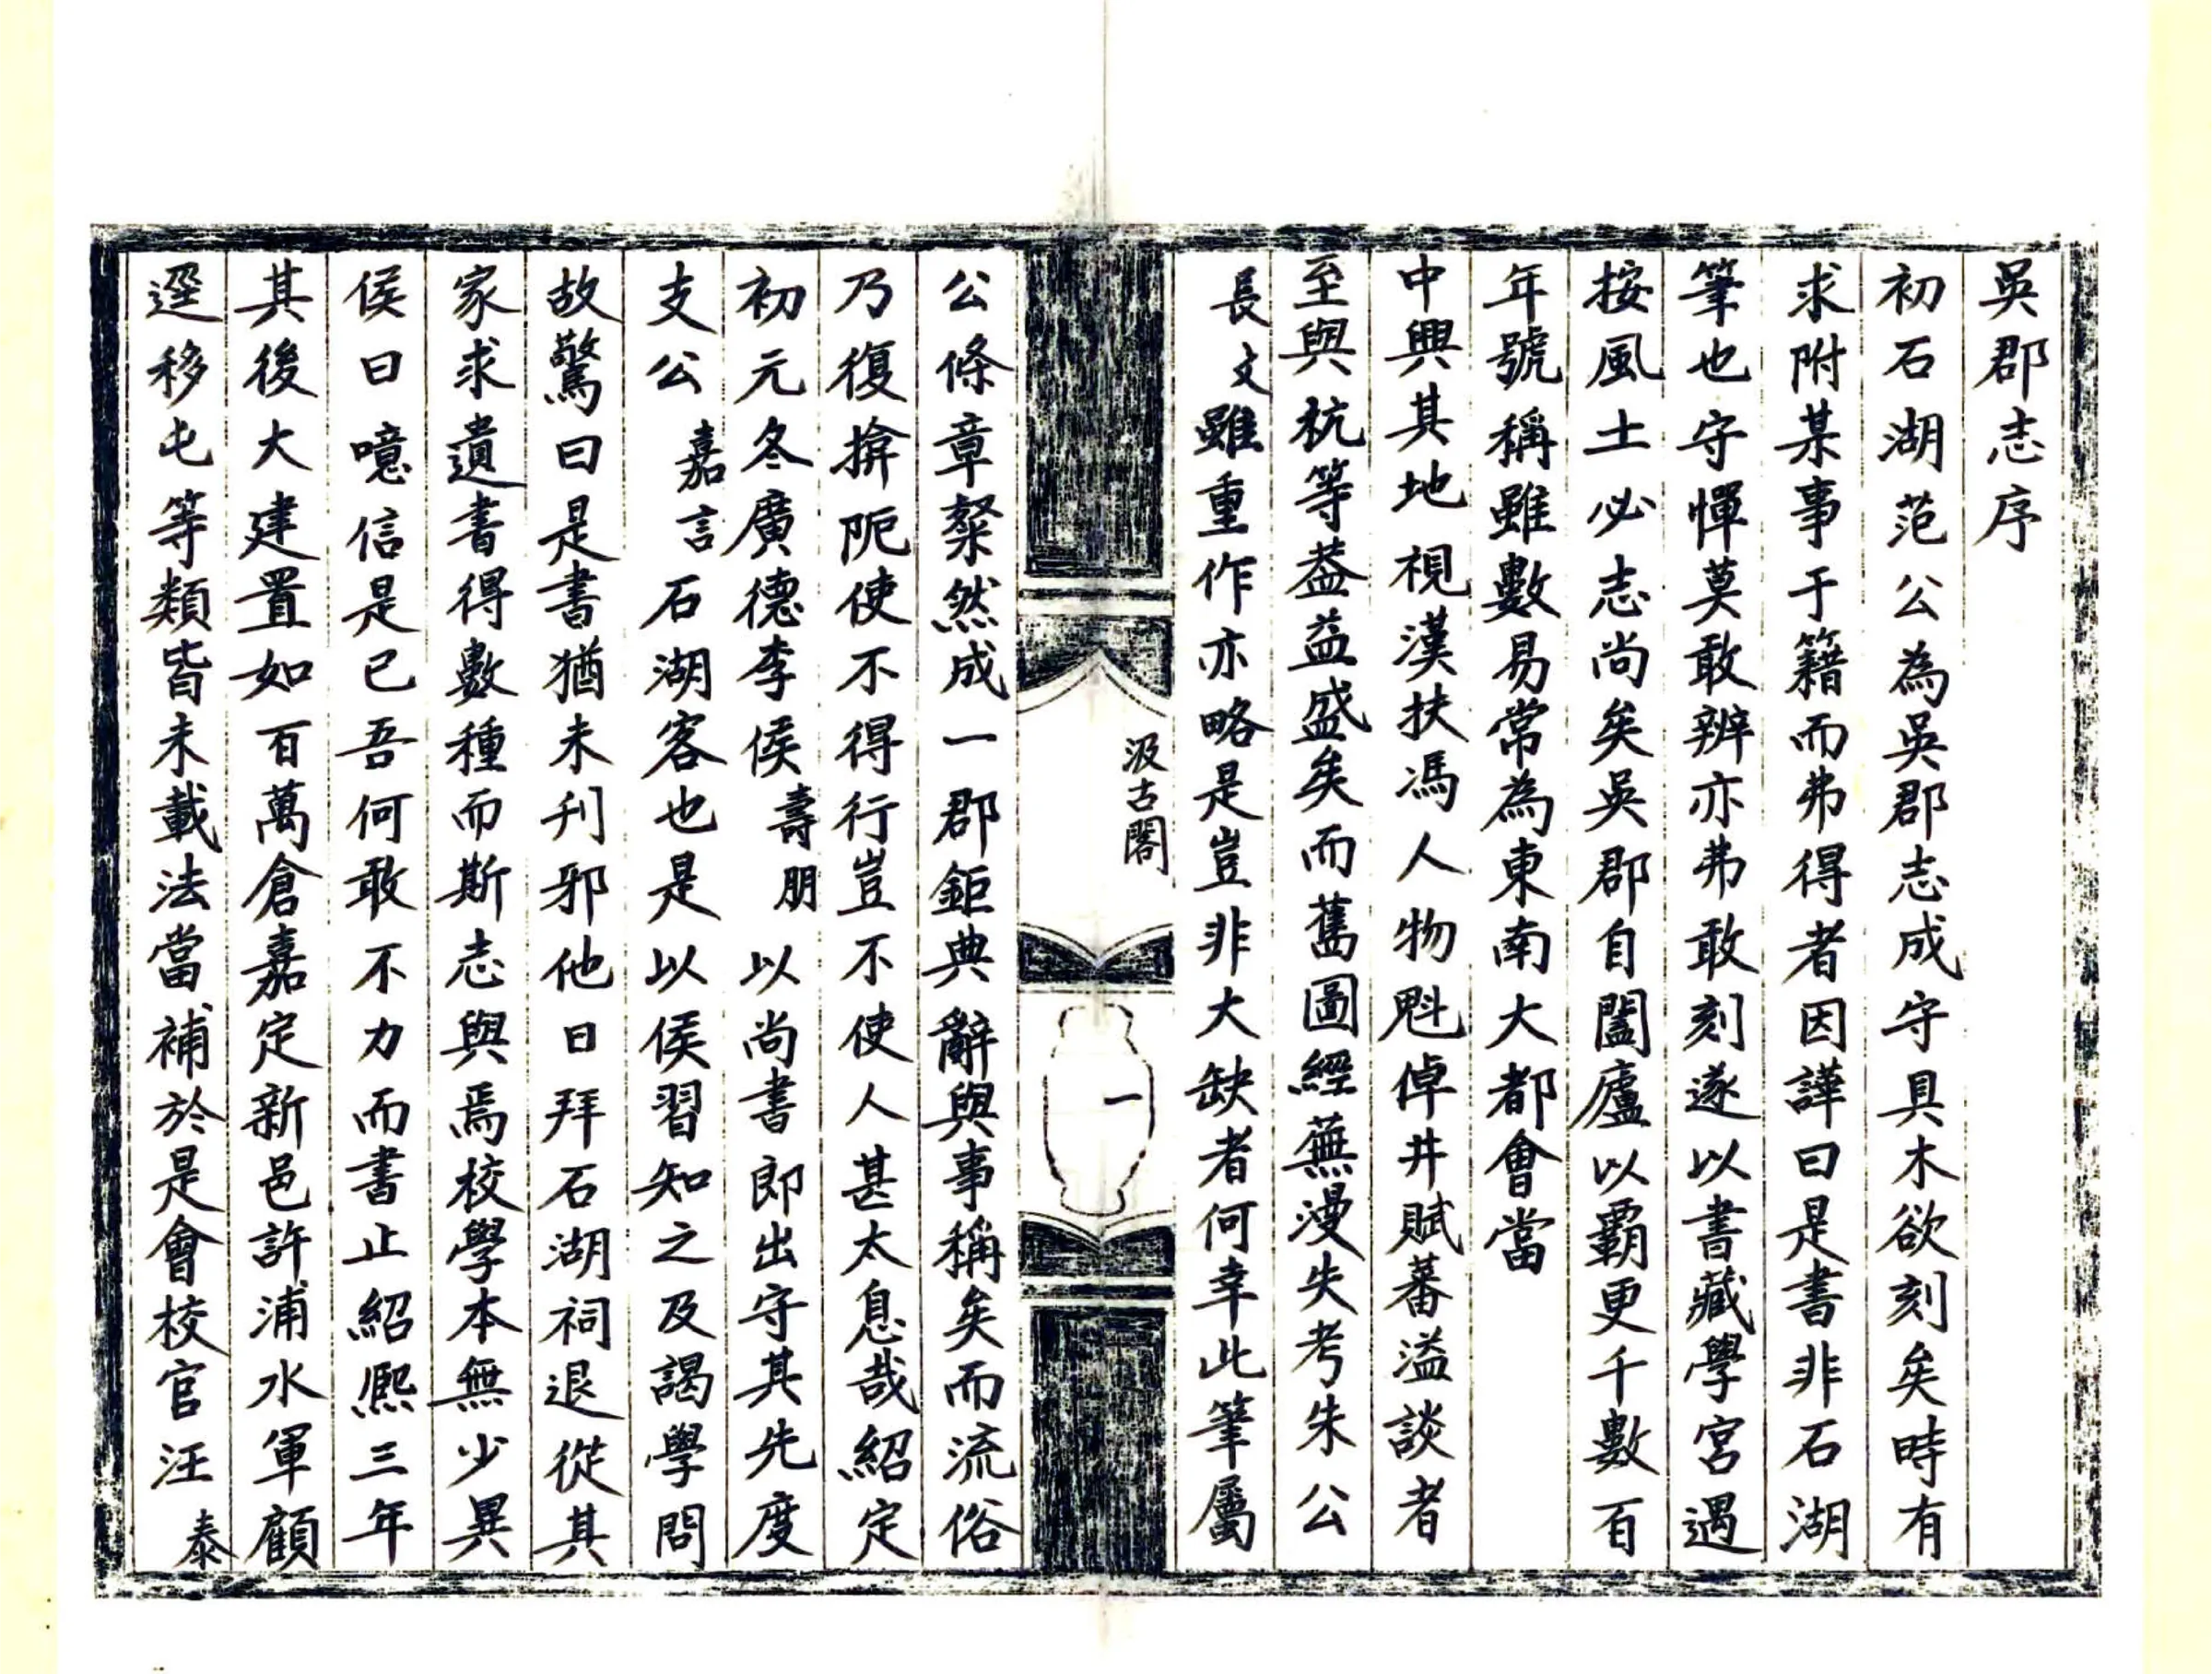 吳郡志序
初石湖范公為吳郡志成守具木欲刻矣時有
求附某事于籍而弗得者因譁曰是書非石湖
筆也守憚莫敢辨亦弗敢刻遂以書藏學宮遇
按風土必志尚矣吳郡自闔廬以霸更千數百
年號稱雖數易常為東南大都會當
中興其地視漢扶馮人物魁倬井賦蕃溢談者
至與杭等葢益盛矣而舊圖經蕪漫失考朱公
長文雖重作亦略是豈非大缺者何幸此筆屬
汲古閣
一
公條章粲然成一郡鉅典辭與事稱矣而流俗
乃復揜阨使不得行豈不使人甚太息哉紹定
初元冬廣德李侯壽朋以尚書郎出守其先度
支公嘉言石湖客也是以侯習知之及謁學問
故驚曰是書猶未刋邪他日拜石湖祠退從其
家求遺書得數種而斯志與焉校學本無少異
侯曰噫信是已吾何敢不力而書止紹熙三年
其後大建置如百萬倉嘉定新邑許浦水軍顧
逕移屯等類皆未載法當補於是會校官汪泰